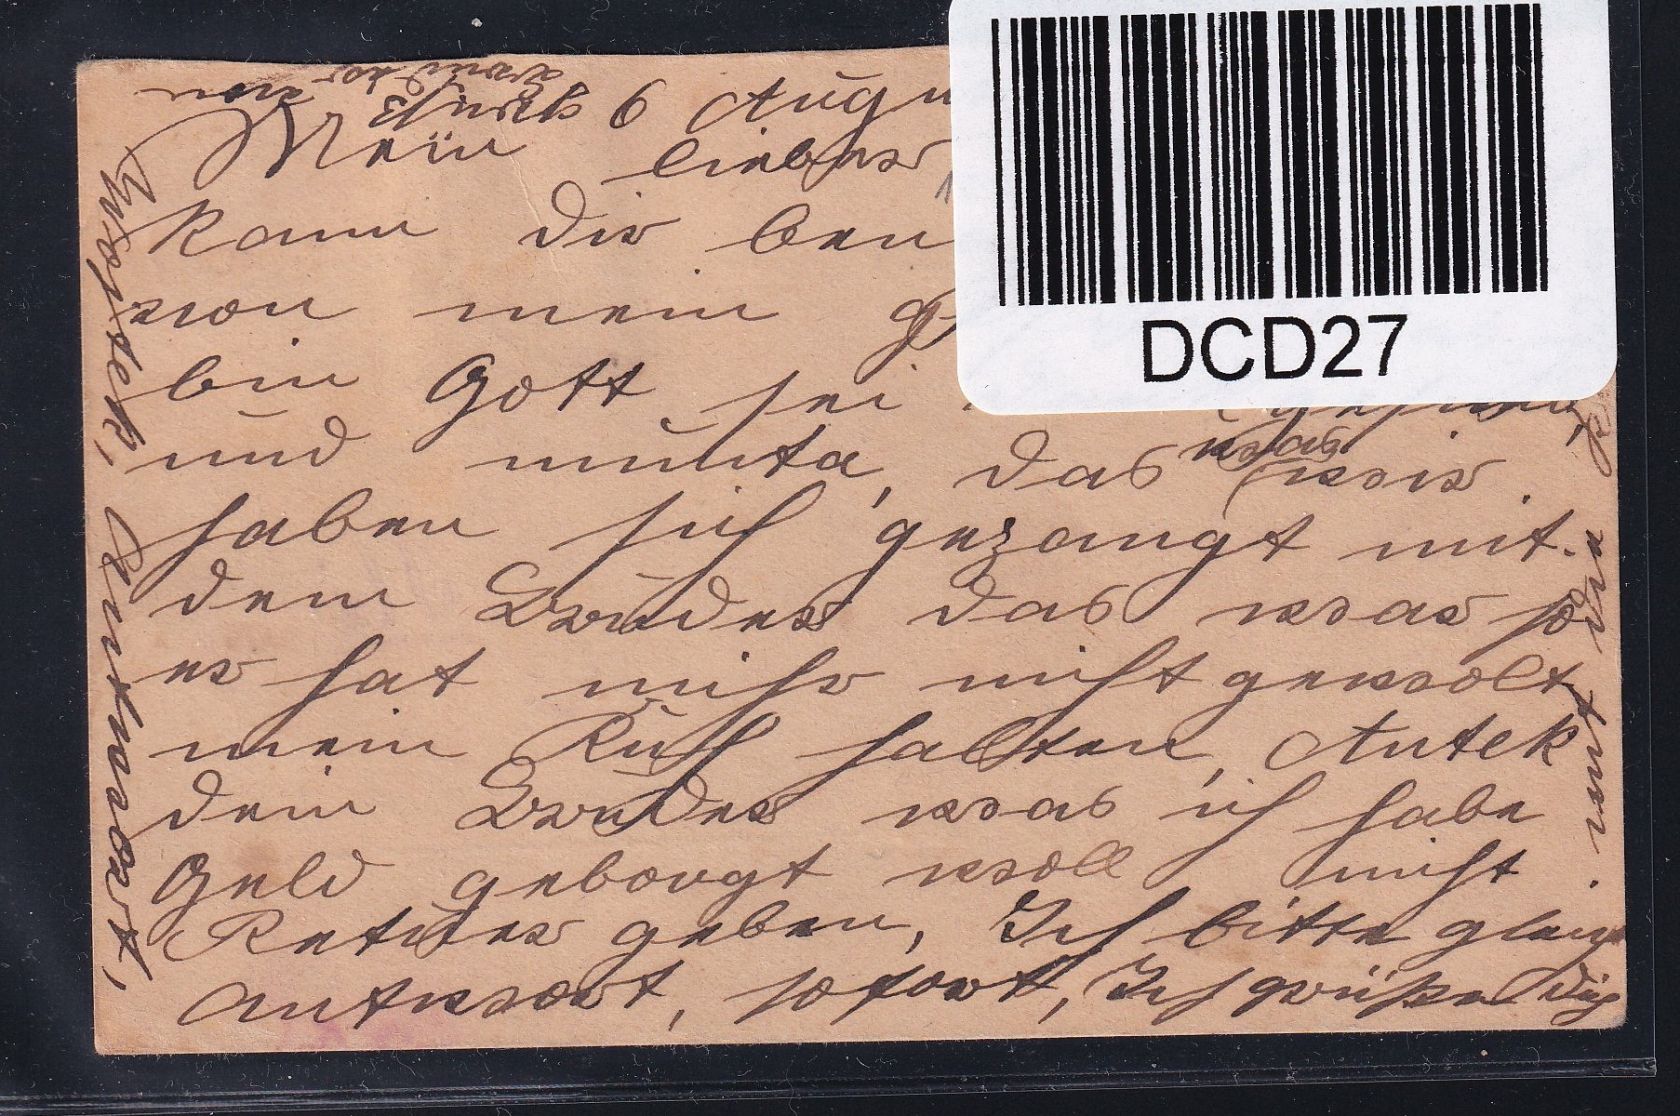 DCD27
6 Augu
Mein lieber
kann dir ben
von mein
bin Gott sei
und munta, das was wir
haben sich gezangt mit
dem Bruder das war so
er hat mihr nicht gewolt
mein Ruh halten, Antek
dein Bruder was ich habe
Geld geborgt woll nicht
Retuer geben, Ich bitte gleig
antwort, sofort, Ich grüße dig
mit die
Antwort,